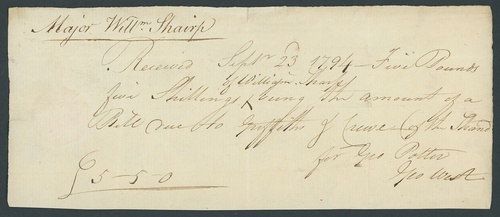 Major Willm Shairp
Received Septr 23 1794 – Five Pounds
of William Sharp
five Shillings being the amount of a
Bill due to Griffiths & Crewe Strand
for Geo Potter
Geo West
£ 5-5-0